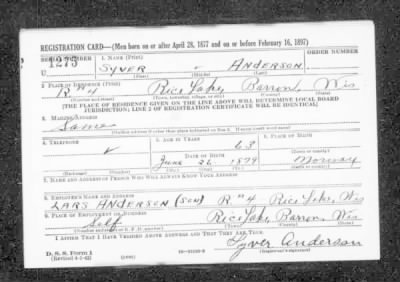 REGISTRATION CARD—(Men born on or after April 28, 1877 and on or before February 16, 1897)
SERIAL NUMBER 1. NAME (Print) ORDER NUMBER
U 1273 SYVER ✓ ANDERSON
(First) (Middle) (Last)
2. PLACE OF RESIDENCE (Print)
R #4 Rice Lake, Barron, Wis
(Number and street) (Town, township, village, or city) (County) (State)
[THE PLACE OF RESIDENCE GIVEN ON THE LINE ABOVE WILL DETERMINE LOCAL BOARD
JURISDICTION; LINE 2 OF REGISTRATION CERTIFICATE WILL BE IDENTICAL]
3. MAILING ADDRESS
Same
[Mailing address if other than place indicated on line 2. If same insert word same]
4. TELEPHONE 5. AGE IN YEARS 6. PLACE OF BIRTH
✓ 63
DATE OF BIRTH (Town or county)
June 26 1879 Norway
(Mo.) (Day) (Yr.) (State or country)
7. NAME AND ADDRESS OF PERSON WHO WILL ALWAYS KNOW YOUR ADDRESS
8. EMPLOYER'S NAME AND ADDRESS
LARS ANDERSON (SON) R #4 Rice Lake, Wis
9. PLACE OF EMPLOYMENT OR BUSINESS
Self Rice Lake, Barron, Wis
(Number and street or R. F. D. number) (Town) (County) (State)
I AFFIRM THAT I HAVE VERIFIED ABOVE ANSWERS AND THAT THEY ARE TRUE.
Syver Anderson
D. S. S. Form 1
(Revised 4-1-42) (over) (Registrant's signature)